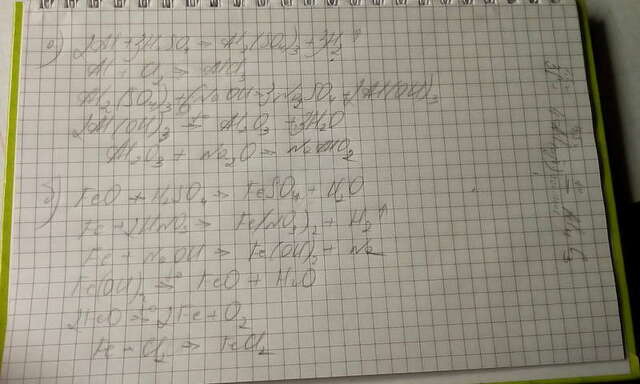 а) 2Al + 3H2SO4 → Al2(SO4)3 + 3H2↑
Al + O2 → AlO3
Al2(SO4)3 + 6NaOH → 3Na2SO4 + 2Al(OH)3
2Al(OH)3 = Al2O3 + 3H2O
Al2O3 + Na2O = NaAlO2
б) FeO + H2SO4 → FeSO4 + H2O
Fe + 2HNO3 → Fe(NO3)2 + H2↑
Fe + NaOH → Fe(OH)2 + Na
Fe(OH)2 → FeO + H2O
2FeO = 2Fe + O2
Fe + Cl2 → FeCl2